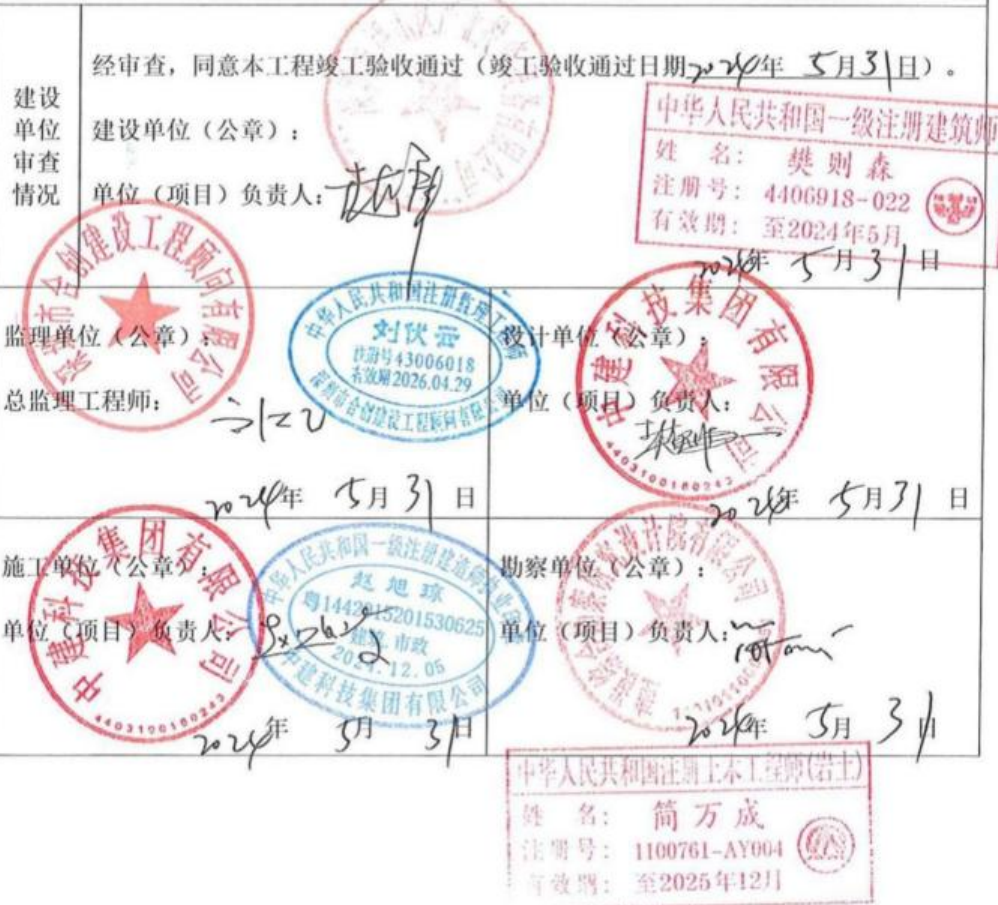 建设单位审查情况
经审查，同意本工程竣工验收通过（竣工验收通过日期2024年 5月31日）。
建设单位（公章）：
单位（项目）负责人：
中华人民共和国一级注册建筑师
姓 名： 樊则森
注册号： 4406918-022
有效期： 至2024年5月
2024年 5月31日
监理单位（公章）：
合创建设工程顾问有限公司
总监理工程师：
中华人民共和国注册监理工程师
刘伏云
注册号43006018
有效期2026.04.29
深圳市合创建设工程顾问有限公司
2024年 5月31日
设计单位（公章）：
中建科技集团有限公司
4403100180243
单位（项目）负责人：
2024年 5月31日
施工单位（公章）：
中建科技集团有限公司
4403100180243
单位（项目）负责人：
中华人民共和国一级注册建造师执业印章
赵旭琼
建筑 市政
中建科技集团有限公司
2024年 5月 31日
勘察单位（公章）：
单位（项目）负责人：
2024年 5月 31日
中华人民共和国注册土木工程师(岩土)
姓 名： 简万成
注册号： 1100761-AY004
有效期： 至2025年12月